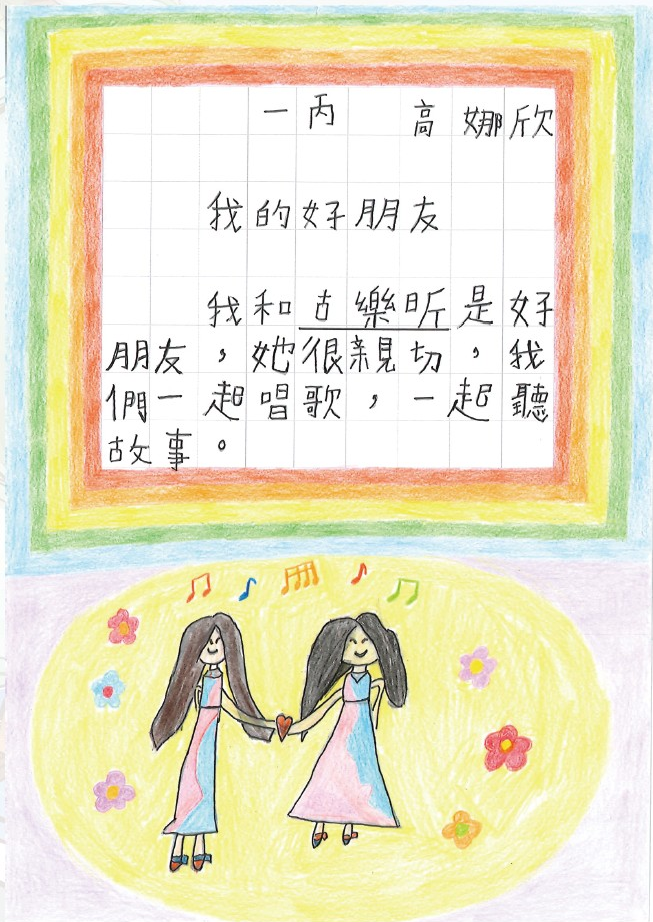 一丙 高娜欣
我的好朋友
我和古樂昕是好
朋友，她很親切，我
們一起唱歌，一起聽
故事。